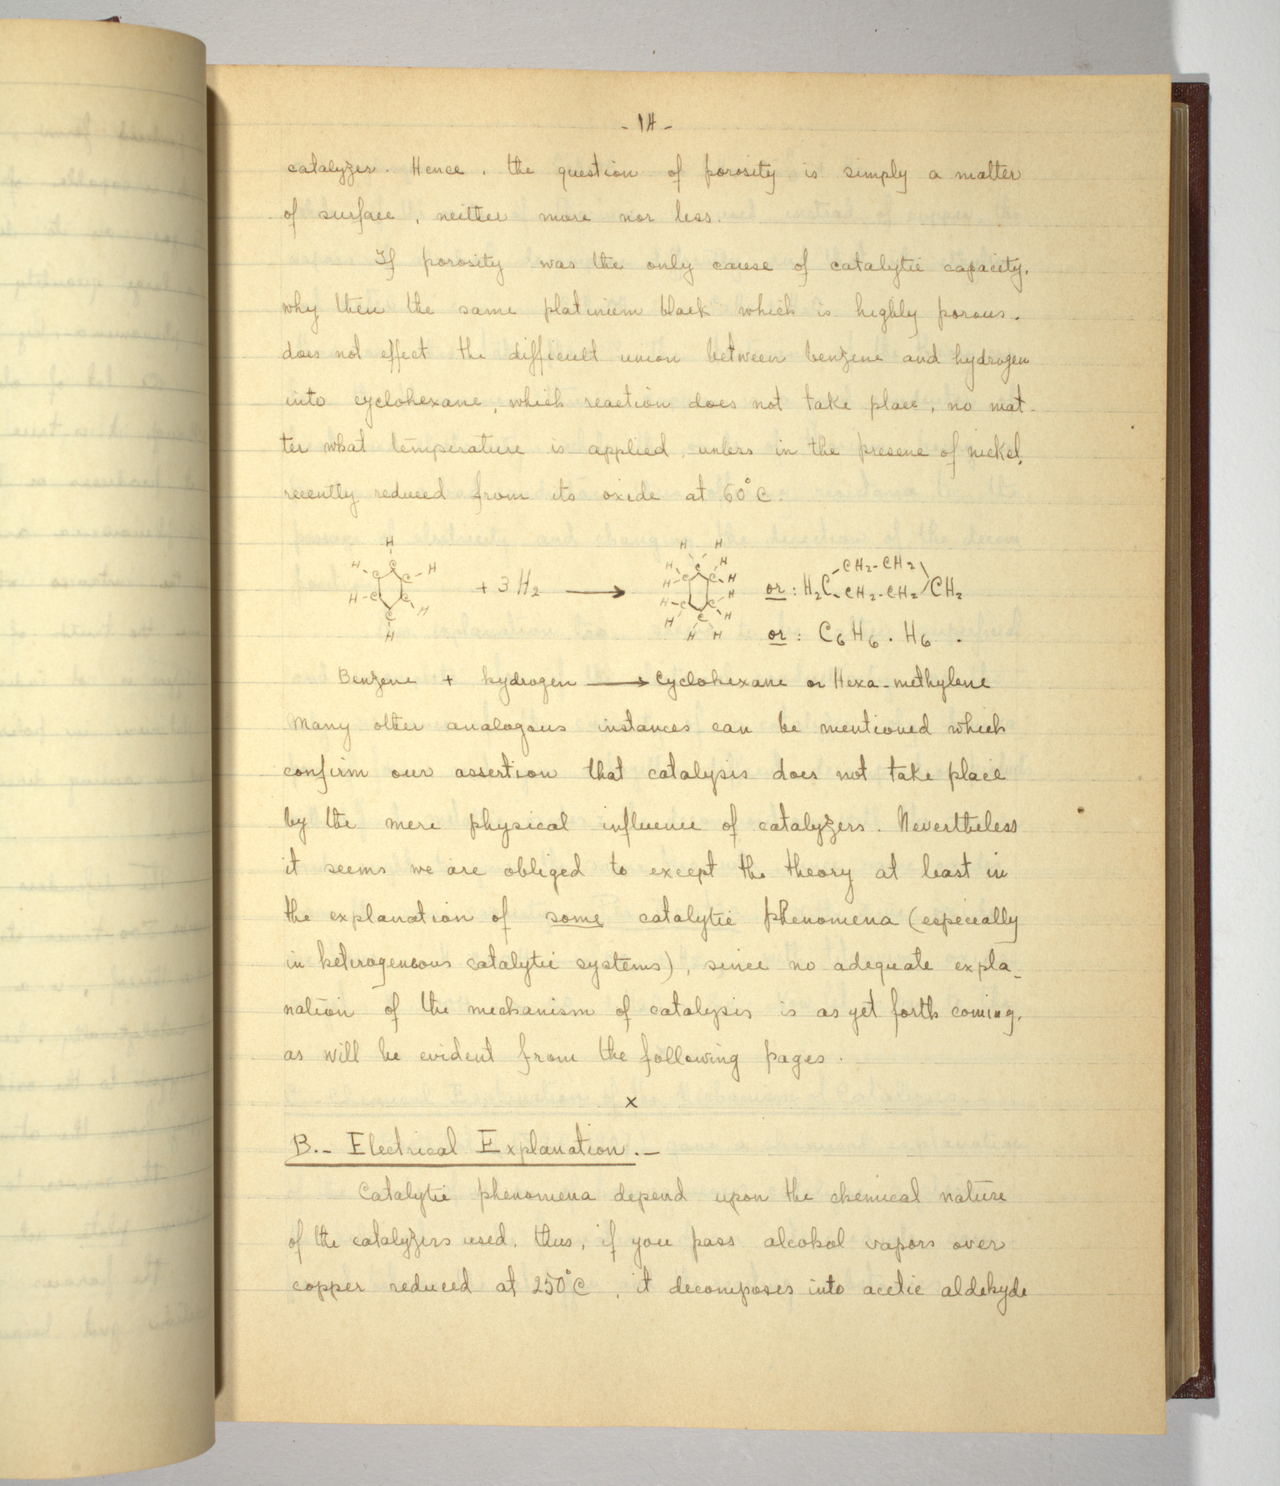 - 14 -
catalyzer. Hence, the question of porosity is simply a matter
of surface, neither more nor less.
If porosity was the only cause of catalytic capacity,
why then the same platinium black which is highly porous,
does not effect the difficult union between benzene and hydrogen
into cyclohexane, which reaction does not take place, no mat-
ter what temperature is applied, unless in the presene of nickel,
recently reduced from its oxide at 60°C.
+ 3H₂ ⟶ or : H₂C CH₂-CH₂ CH₂-CH₂ CH₂
or : C₆H₆ . H₆ .
Benzene + hydrogen ⟶ Cyclohexane or Hexa-methylene
Many other analogous instances can be mentioned which
confirm our assertion that catalysis does not take place
by the mere physical influence of catalyzers. Nevertheless
it seems we are obliged to except the theory at least in
the explanation of some catalytic phenomena (especially
in heterogeneous catalytic systems), since no adequate expla-
nation of the mechanism of catalysis is as yet forth coming,
as will be evident from the following pages.
x
B.- Electrical Explanation.-
Catalytic phenomena depend upon the chemical nature
of the catalyzers used. thus, if you pass alcohol vapors over
copper reduced at 250°C, it decomposes into acetic aldehyde